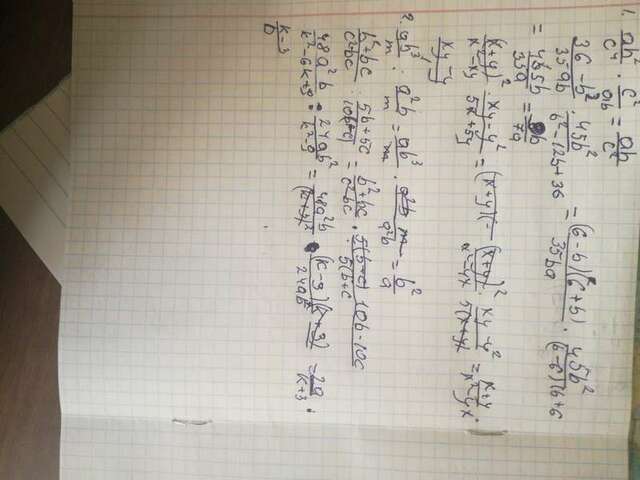 1. ab²/c⁴ · c²/ab = ab/c²
36-b²/35ab · 45b²/b²-12b+36 = (6-b)(6+b)/35ba · 45b²/(b-6)(b+6
= b/7a
(x+y)²/x²-xy · xy-y²/5x+5y = (x+y)²/x²-yx · xy-y²/5(x+y) = x+y/x²-yx ·
xy-y
2. ab³/m : a²b/m = ab³/m · m/a²b = b²/a
b²+bc/c²-bc : 5b+5c = b²+bc/c²bc · 10b-10c/5(b+c
48a²b/k²-6k+9 : 24ab²/k²-9 = 48a²b/(k+3)² · (k-3)(k+3)/24ab² = 2a/k+3 ·
k-3/b